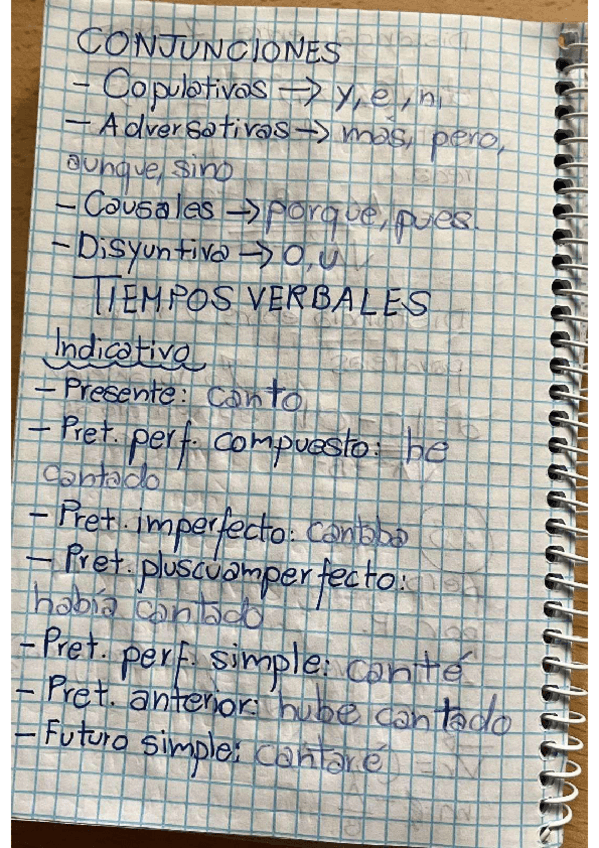 CONJUNCIONES
- Copulativas → y, e, ni
- Adversativas → mas, pero,
aunque, sino
- Causales → porque, pues.
- Disyuntiva → O, u
TIEMPOS VERBALES
Indicativo
- Presente: canto
- Pret. perf. compuesto: he
cantado
- Pret. imperfecto: cantaba
- Pret. pluscuamperfecto:
había cantado
- Pret. perf. simple: canté
- Pret. anterior: hube cantado
- Futuro simple: cantaré